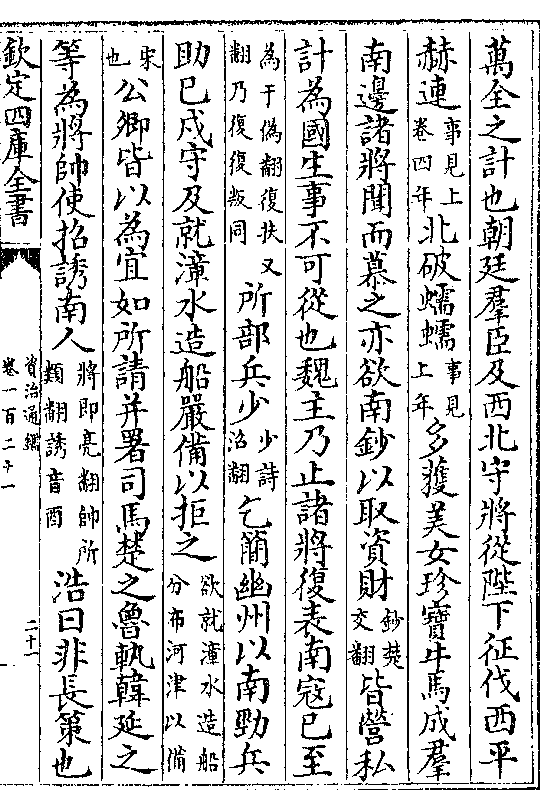 萬全之計也朝廷羣臣及西北守將從陛下征伐西平
赫連事見上卷四年北破蠕蠕事見上年多獲美女珍寶牛馬成羣
南邊諸將聞而慕之亦欲南鈔以取資財鈔楚交翻皆營私
計為國生事不可從也魏主乃止諸將復表南寇已至
為干偽翻復扶又翻乃復復叛同所部兵少少詩沼翻乞簡幽州以南勁兵
助已戍守及就漳水造船嚴備以拒之欲就漳水造船分布河津以備
宋也公卿皆以為宜如所請并署司馬楚之魯軌韓延之
等為將帥使招誘南人將即亮翻帥所類翻誘音酉浩曰非長策也
欽定四庫全書
資治通鑑
卷一百二十一
二十一